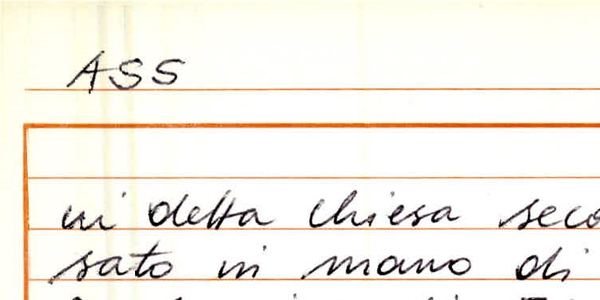 ASS
in detta chiesa seco
sato in mano di